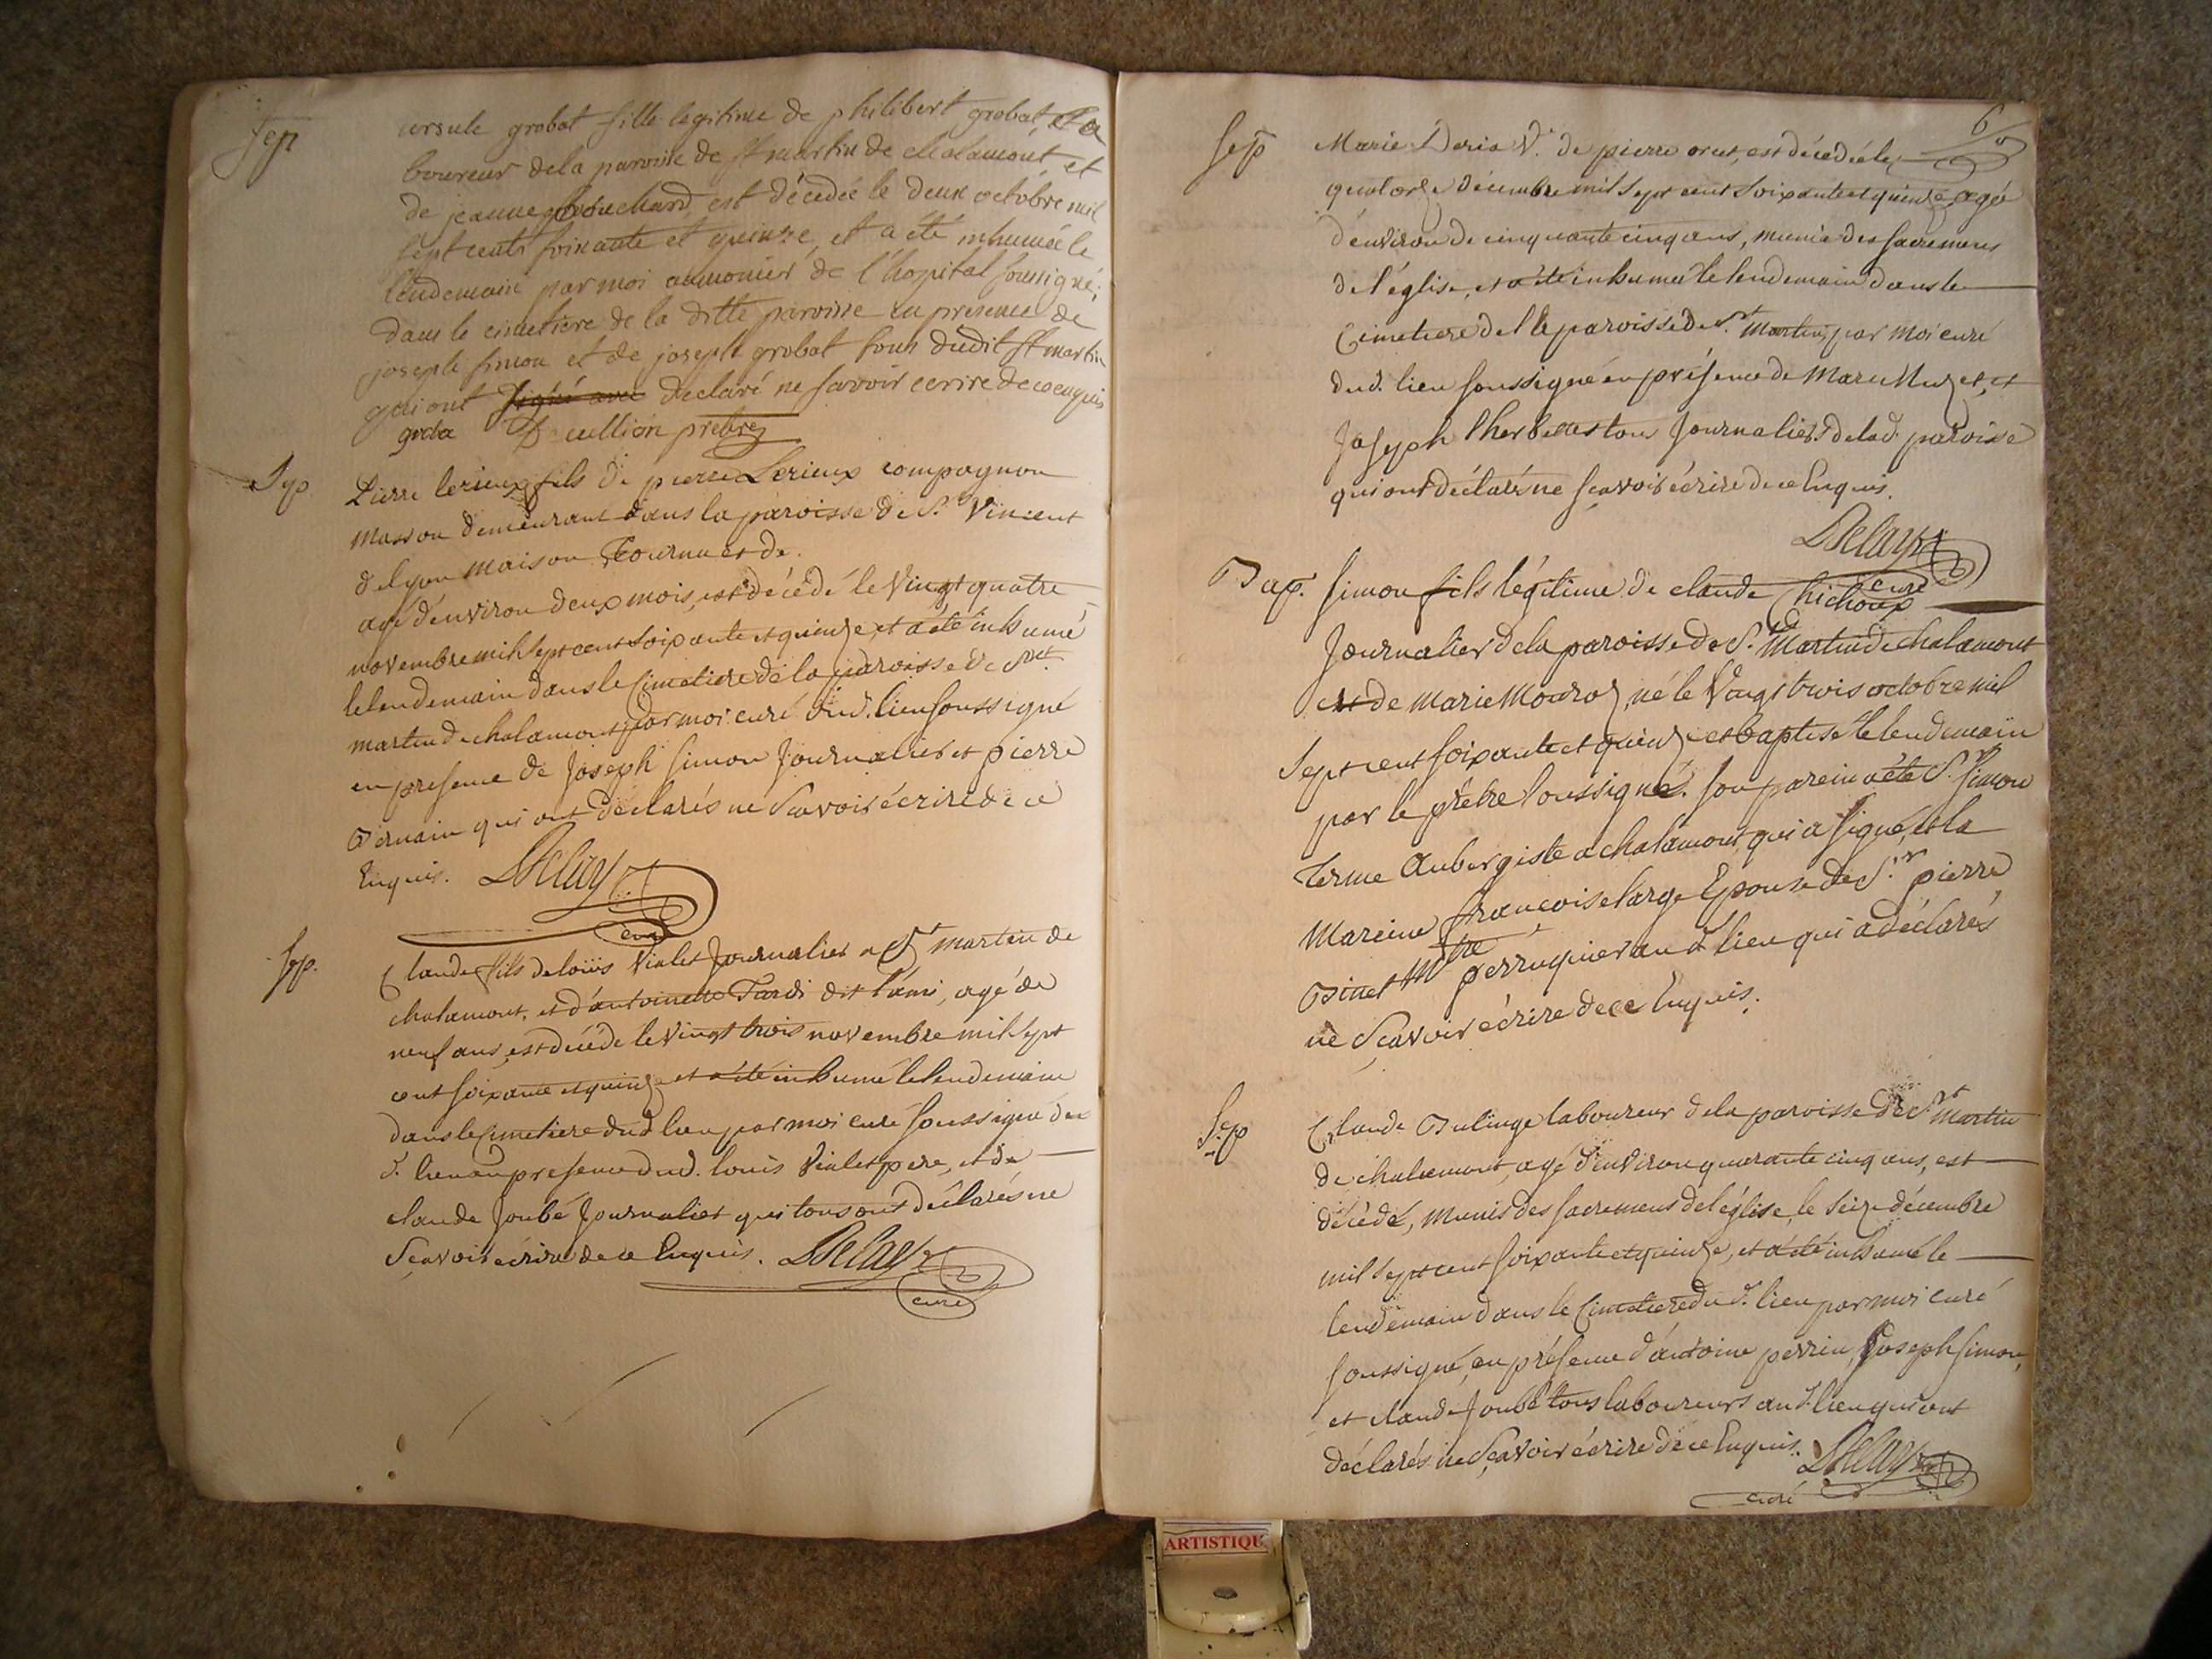 Sep
ursule grobat fille legitime de philibert grobat, la
boureur de la paroisse de st martin de chalamont et
de jeanne bouchard, est décedée le deux octobre mil
sept cents soixante et quinze, et a été inhumée le
lendemain par moi aumonier de l'hopital soussigné;
dans le cimetiere de la ditte paroisse en presence de
joseph simon et de joseph grobat tous dudit st martin
qui ont signé avec declaré ne savoir ecrire de ce enquis
cullion prêtre
Sep
Pierre lerieux fils de pierre Lerieux compagnon
masson demeurant dans la paroisse de St Vincent
de lyon maison Tournu et de.
agé d'environ deux mois, est décédé le Vingt quatre
novembre mil sept cent soixante et quinze et a été inhumé
le lendemain dans le Cimetiere de la paroisse de St
martin de chalamont par moi curé dud. lieu soussigné
en presence de Joseph Simon Journalier et pierre
qui ont déclarés ne Scavoir écrire de ce
Enquis. Delay
curé
Sep.
Claude fils de loüis Vialet Journalier a St martin de
chalamont, et d'antoinette Tardi dit l'ami, agé de
neuf ans, est décédé le Vingt trois novembre mil sept
cent soixante et quinze et a été inhumé le lendemain
dans le cimetiere dud lieu par moi curé soussigné du
d. lieu en presence dud. louis Vialet pere, et de
claude Joubé Journalier qui tous ont déclarés ne
Sçavoir ecrire de ce Enquis. Delay
curé
6
Sep
Marie Ve de pierre est décédée le
quatorze décembre mil sept cent soixante et quinze, agé
d'environ de cinquante cinq ans, munie des sacremens
de l'église, et a été inhumée le lendemain dans le
Cimetiere de la paroisse de St martin, par moi curé
dud. lieu soussigné en présence de et
Joseph tous Journaliers de lad. paroisse
qui ont déclarés ne sçavoir écrire de ce Enquis.
Delay
curé
Bap.
Simon fils légitime de claude Chichoux
Journalier de la paroisse de St Martin de chalamont
et de marie Mouroz, né le Vingt trois octobre mil
Sept cent soixante et quinze et baptisé le lendemain
par le prêtre soussigné. son parein a été Sr Simon
terme Aubergiste a chalamont, qui a signé, et la
Mareine françoise large Epouse de Sr pierre
Binet Mtre perruquier aud. lieu qui a déclarés
ne Sçavoir écrire de ce Enquis.
Sep
Claude Bulinge laboureur de la paroisse de St Martin
de chalamont, agé d'environ quarante cinq ans, est
décédé, munis des sacremens de l'église, le seize décembre
mil Sept cent soixante et quinze, et a été inhumé le
lendemain dans le Cimetiere dud. lieu par moi curé
soussigné, en présence d'antoine perrin, Joseph Simon,
et claude Joubé tous laboureurs aud. lieu qui ont
déclarés ne Sçavoir écrire de ce Enquis. Delay
curé
ARTISTIQU